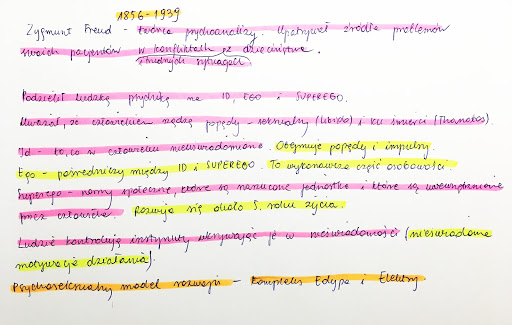 1856-1939
Zygmunt Freud - twórca psychoanalizy. Upatrywał źródła problemów
swoich pacjentów w konfliktach z dzieciństwa.
trudnych sytuacjach
Podzielił ludzką psychikę na ID, EGO i SUPEREGO.
Uważał, że człowiekiem rządzą popędy - seksualny (libido) i ku śmierci (Thanatos).
Id - to, co w człowieku nieuświadomione. Obejmuje popędy i impulsy.
Ego - pośredniczy między ID i SUPEREGO. To wykonawcza część osobowości.
Superego - normy społeczne, które są narzucone jednostce i które są uwewnętrznione
przez człowieka. Rozwija się około 5. roku życia.
Ludzie kontrolują instynkty ukrywając je w nieświadomości (nieświadome
motywacje działania).
Psychoseksualny model rozwoju - kompleks Edypa i Elektry